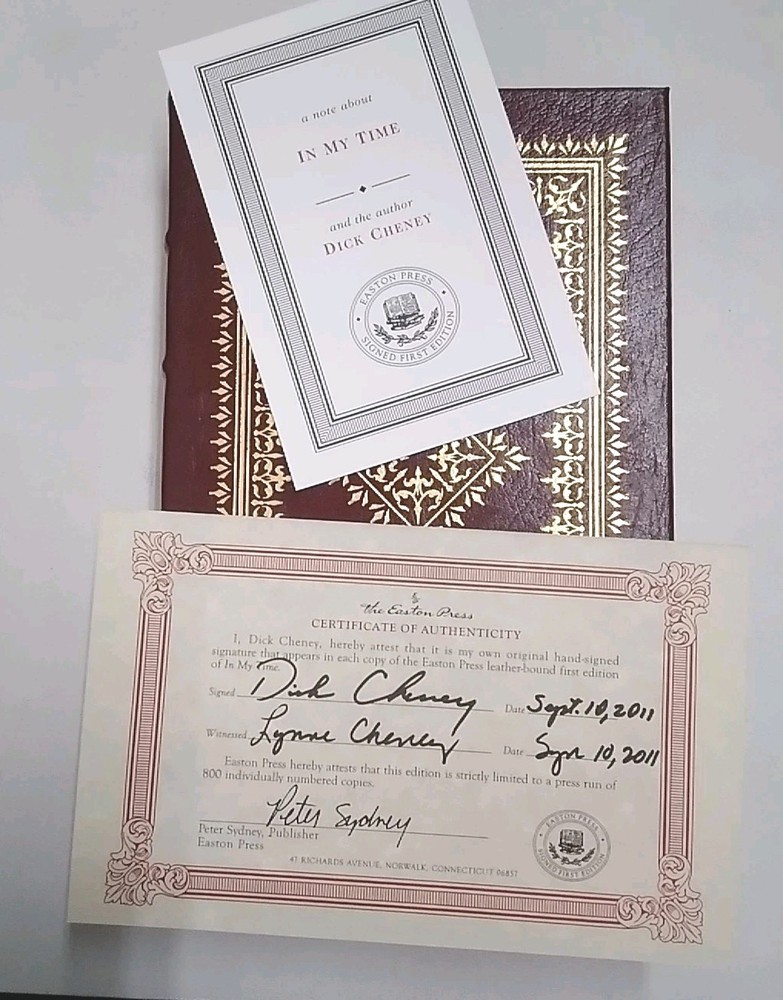 a note about
IN MY TIME
and the author
DICK CHENEY
EASTON PRESS
SIGNED FIRST EDITION
The Easton Press
CERTIFICATE OF AUTHENTICITY
I, Dick Cheney, hereby attest that it is my own original hand-signed
signature that appears in each copy of the Easton Press leather-bound first edition
of In My Time.
Signed Dick Cheney Date Sept. 10, 2011
Witnessed Lynne Cheney Date 10, 2011
Easton Press hereby attests that this edition is strictly limited to a press run of
800 individually numbered copies.
Peter Sydney
Peter Sydney, Publisher
Easton Press
47 RICHARDS AVENUE, NORWALK, CONNECTICUT 06857
EASTON PRESS
SIGNED FIRST EDITION